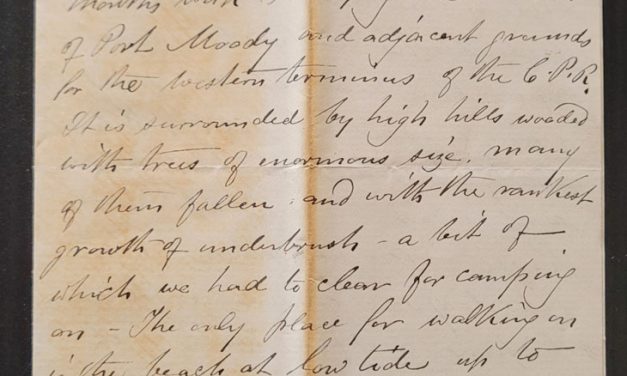 months work is
of Port Moody and adjacent grounds
for the western terminus of the C.P.R.
It is surrounded by high hills wooded
with trees of enormous size. many
of them fallen. and with the rankest
growth of underbrush - a bit of
which we had to clear for camping
on - The only place for walking on
is the beach at low tide up to